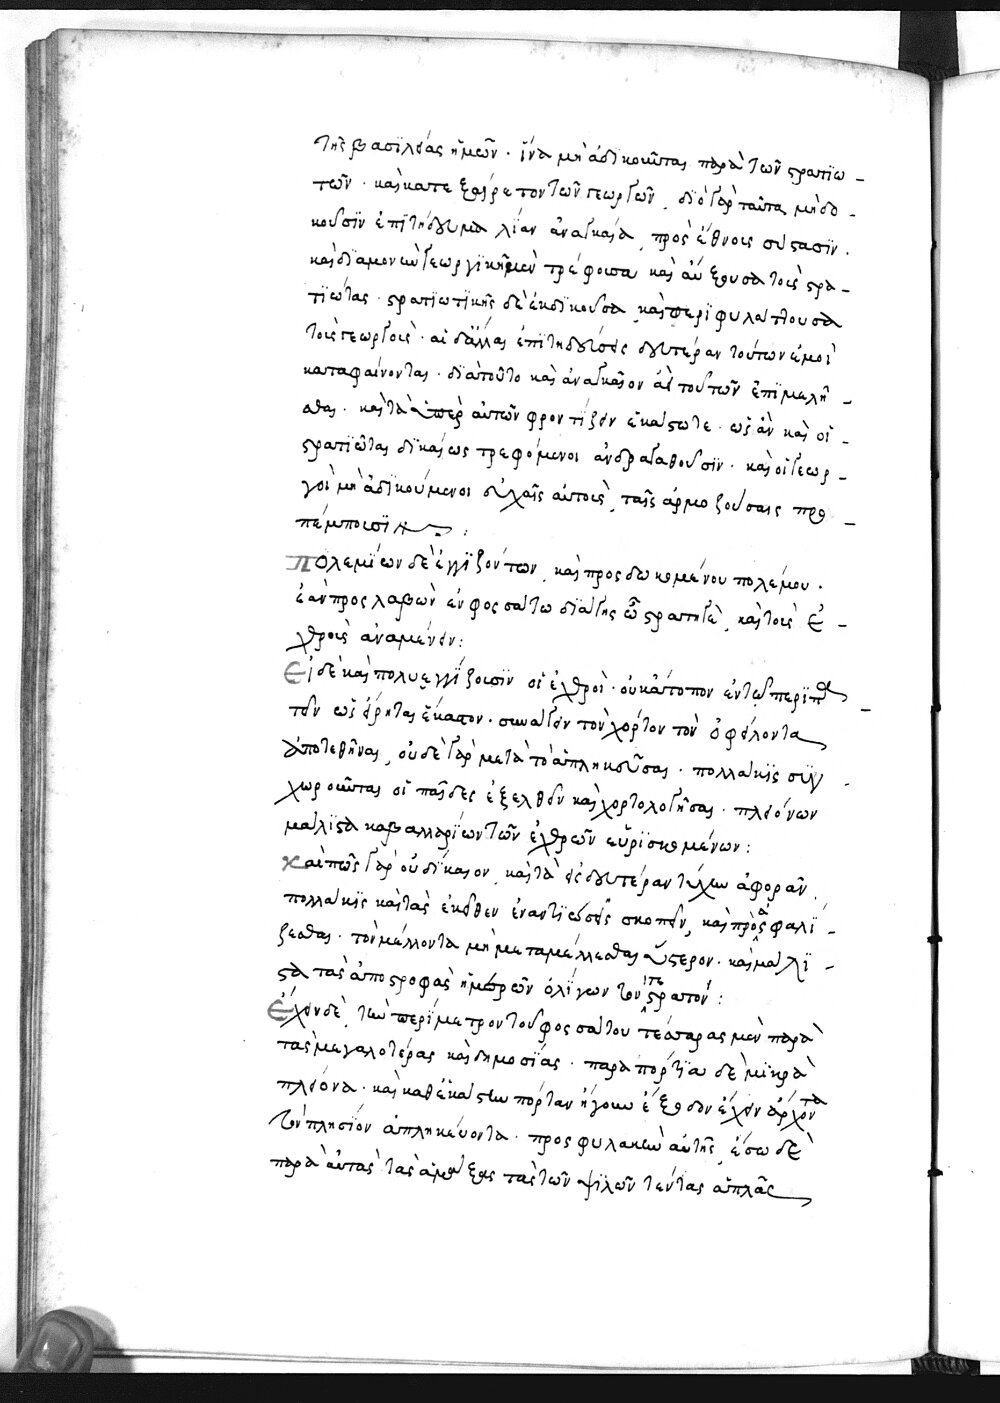 τῆς βασιλείας ἡμῶν · ἵνα μὴ ἀδικοῦνται παρὰ τῶν στρατιω-
τῶν · καὶ κατ' ἐξαίρετον τῶν γεωργῶν, δύο γὰρ ταῦτα μὴ δο-
κοῦσιν ἐπιτήδευμα λίαν ἀναγκαῖα, πρὸς ἔθνους σύστασιν ·
καὶ διαμονὴν γεωργικὴ μὲν τρέφουσα καὶ αὔξουσα τοὺς στρα-
τιώτας · στρατιωτικὴ δὲ ἐκδικοῦσα καὶ περιφυλάττουσα
τοὺς γεωργοὺς · αἱ δὲ ἄλλαι ἐπιτηδεύσεις δευτέραν τούτων ἐμοὶ
καταφαίνονται · διὰ τοῦτο καὶ ἀναγκαῖον ἀεὶ τούτων ἐπιμελεῖ-
σθαι · καὶ τὰ ὑπὲρ αὐτῶν φροντίζειν ἑκάστοτε · ὡς ἂν καὶ οἱ
στρατιῶται δικαίως τρεφόμενοι ἀνδραγαθοῦσιν · καὶ οἱ γεωρ-
γοὶ μὴ ἀδικούμενοι εὐχαῖς αὐτοὺς ταῖς ἁρμοζούσαις προ-
πέμπουσιν :
Πολεμίων δὲ ἐγγιζόντων, καὶ προσδωκομένου πολέμου ·
ἐὰν προσλαβὼν ἐν φοσσάτω διάγης ὦ στρατηγὲ, καὶ τοὺς ἐ-
χθροὺς ἀναμένειν :
Εἰ δὲ καὶ πολυεγγίζουσιν οἱ ἐχθροὶ · οὐκ ἄτοπον ἐντὸς
τὸν ὡς εἴρηται ἕκαστον · συνάγειν τὸν χόρτον τὸν ὀφείλοντα
ἀποτεθῆναι, οὐδὲ γὰρ μετὰ τὸ ἀπληκεῦσαι · πολλάκις συγ-
χωροῦνται οἱ παῖδες ἐξελθεῖν καὶ χορτολογῆσαι · πλειόνων
μάλιστα καβαλλαρίων τῶν ἐχθρῶν εὑρισκομένων :
Καὶ πῶς γὰρ οὐ δίκαιον, καὶ τὰ εἰς δευτέραν τύχην ἀφορᾶν
πολλάκις καὶ τὰς ἐκεῖθεν ἐναντιώσεις σκοπεῖν, καὶ πρὸς ἀσφαλί-
ζεσθαι · τὸν μέλλοντα μὴ μεταμέλλεσθαι ὕστερον · καὶ μάλι-
στα τὰς ἀποστροφὰς ἡμερῶν ὀλίγων τῶν ἱπποστρατον :
Ἔχειν δὲ, τὴν περίμετρον τοῦ φοσσάτου τέσσαρας μὲν παρὰ
τὰς μεγαλοτέρας καὶ δημοσίας · παραπόρτια δὲ μικρὰ
πλείονα · καὶ καθ' ἑκάστην πόρταν ἤγουν ἔξοδον ἔχειν ἄρχοντα
τὸν πλησίον ἀπληκεύοντα · πρὸς φυλακὴν αὐτῆς, ἔσω δὲ
παρὰ αὐτὰς τὰς ἁμάξας τὰς τῶν ψιλῶν τέντας ἁπλᾶς